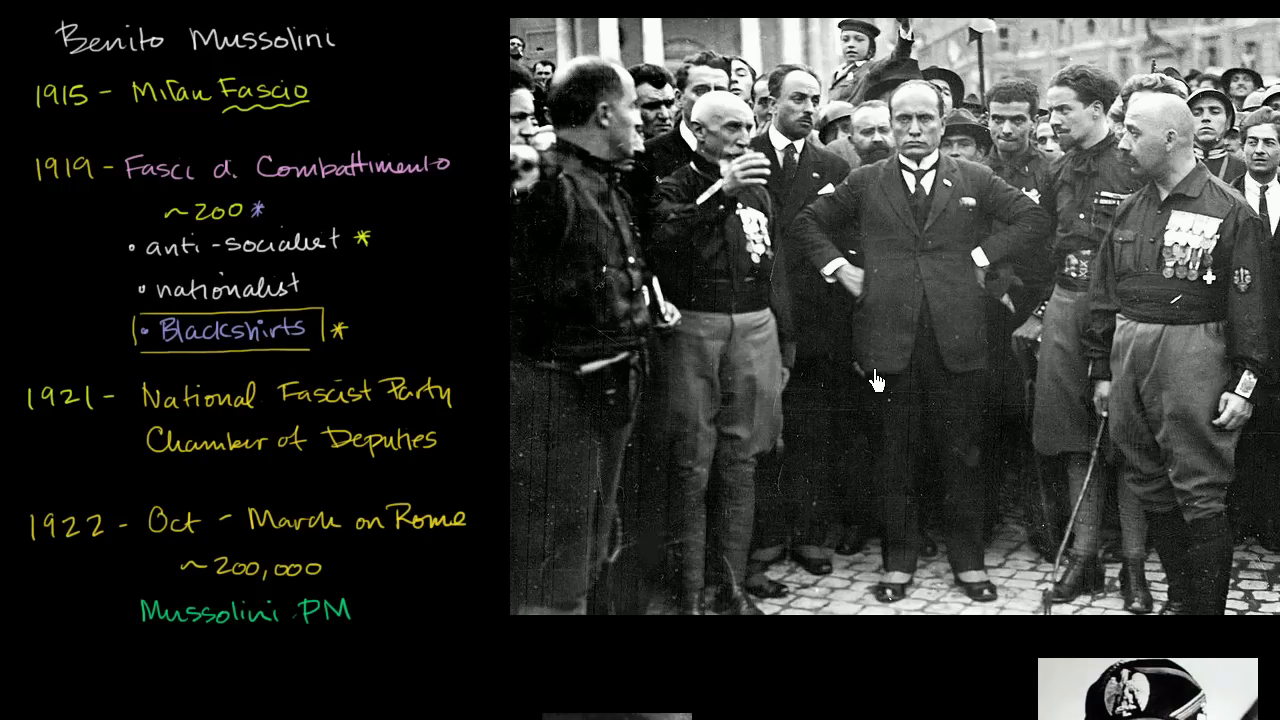 Benito Mussolini
1915 - Milan Fascio
1919 - Fasci d. Combattimento
~200 *
• anti-socialist *
• nationalist
• Blackshirts *
1921 - National Fascist Party
Chamber of Deputies
1922 - Oct - March on Rome
~200,000
Mussolini PM